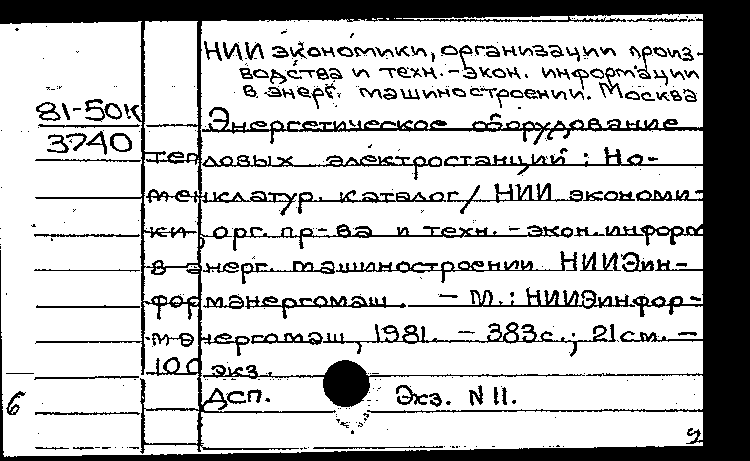 НИИ экономики, организации произ-
водства и техн.-экон. информации
в энерг. машиностроении. Москва
81-50К
3740
Энергетическое оборудование
тепловых электростанций: Но-
менклатур. каталог/ НИИ экономи-
ки, орг. пр-ва и техн.-экон. информ
в энерг. машиностроении НИИЭин-
форманергомаш. - М.: НИИЭинфор-
манергомаш, 1981. - 383с.; 21см. -
100 экз.
Дсп. Экз. N 11.
6